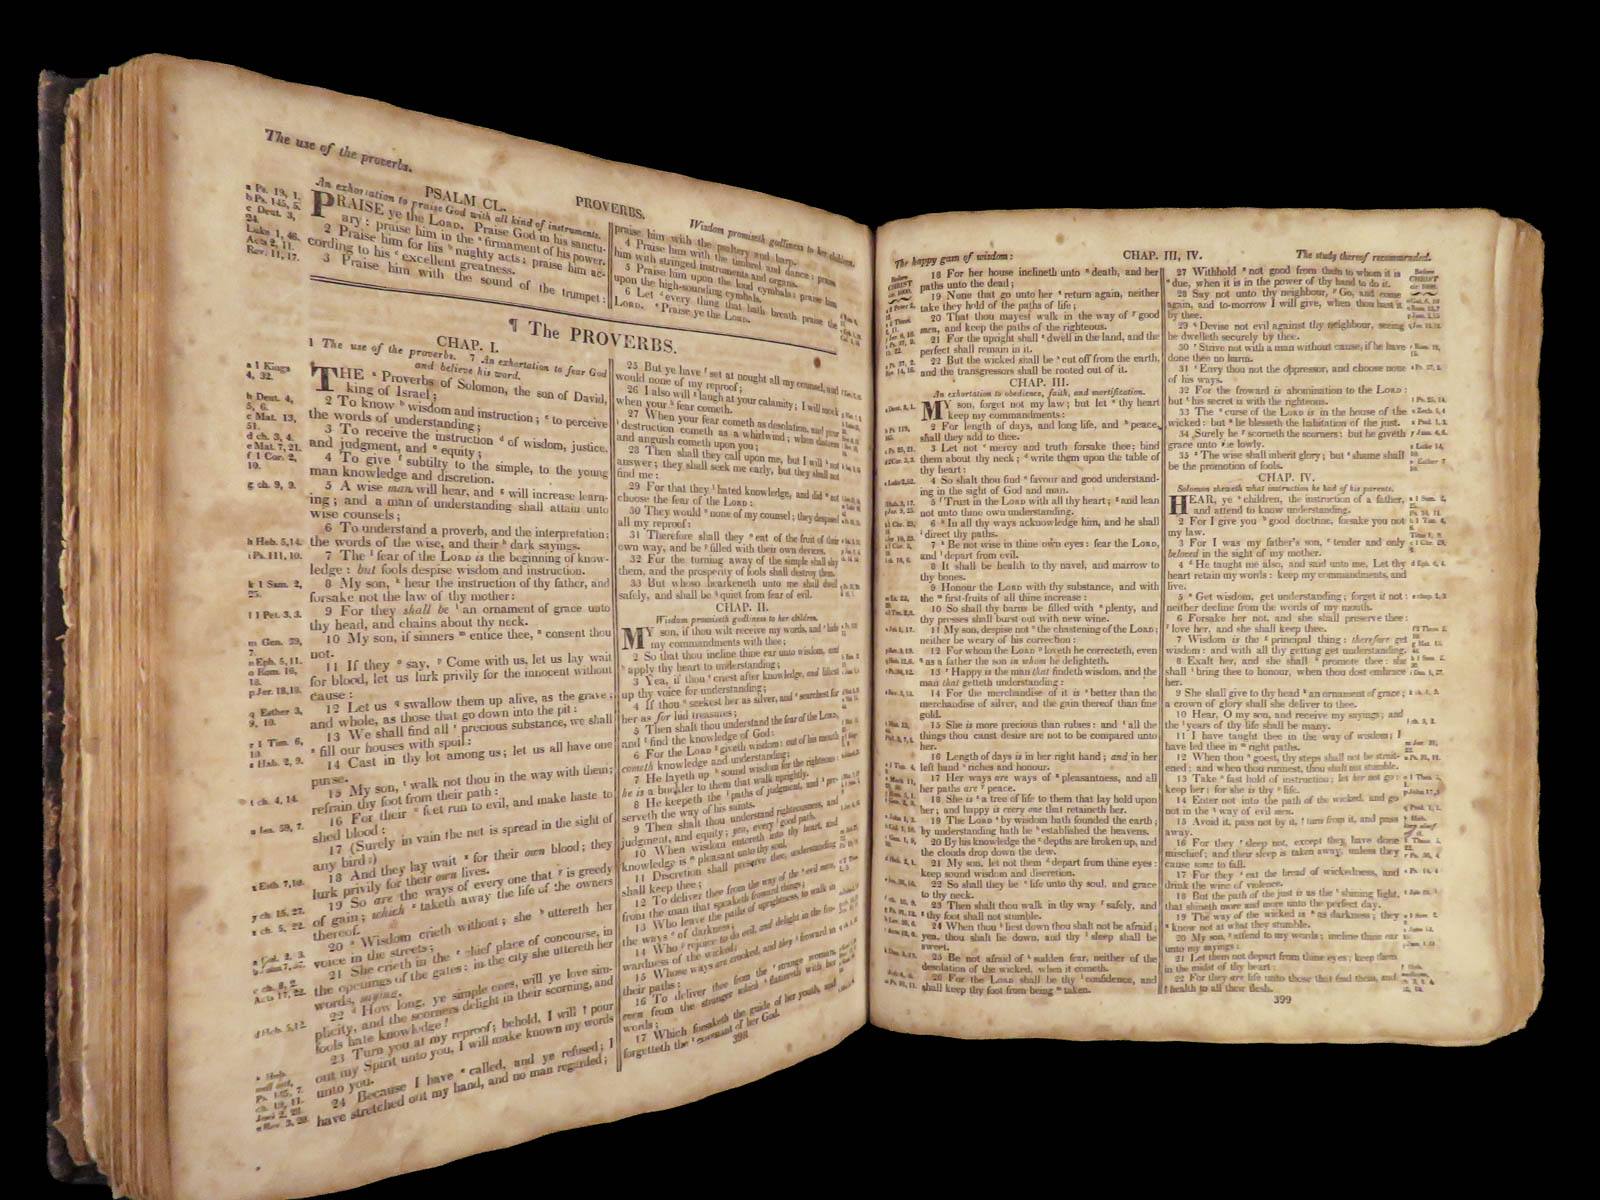 The use of the proverbs.
PROVERBS.
Wisdom promiseth godliness to her children.
PSALM CL.
An exhortation to praise God with all kind of instruments.
PRAISE ye the LORD. Praise God in his sanctu-
ary: praise him in the firmament of his power.
2 Praise him for his mighty acts: praise him ac-
cording to his excellent greatness.
3 Praise him with the sound of the trumpet:
praise him with the psaltery and harp.
4 Praise him with the timbrel and dance: praise
him with stringed instruments and organs.
5 Praise him upon the loud cymbals: praise him
upon the high-sounding cymbals.
6 Let every thing that hath breath praise the
LORD. Praise ye the LORD.
a Ps. 19, 1.
b Ps. 145, 5.
c Deut. 3,
24.
Luke 1, 46.
Acts 2, 11.
Rev. 11, 17.
¶ The PROVERBS.
CHAP. I.
1 The use of the proverbs. 7 An exhortation to fear God
and believe his word.
THE Proverbs of Solomon, the son of David,
king of Israel;
2 To know wisdom and instruction; to perceive
the words of understanding;
3 To receive the instruction of wisdom, justice,
and judgment, and equity;
4 To give subtilty to the simple, to the young
man knowledge and discretion.
5 A wise man will hear, and will increase learn-
ing; and a man of understanding shall attain unto
wise counsels;
6 To understand a proverb, and the interpretation;
the words of the wise, and their dark sayings.
7 The fear of the LORD is the beginning of know-
ledge: but fools despise wisdom and instruction.
8 My son, hear the instruction of thy father, and
forsake not the law of thy mother:
9 For they shall be an ornament of grace unto
thy head, and chains about thy neck.
10 My son, if sinners entice thee, consent thou
not.
11 If they say, Come with us, let us lay wait
for blood, let us lurk privily for the innocent without
cause:
12 Let us swallow them up alive, as the grave;
and whole, as those that go down into the pit:
13 We shall find all precious substance, we shall
fill our houses with spoil:
14 Cast in thy lot among us; let us all have one
purse.
15 My son, walk not thou in the way with them;
refrain thy foot from their path:
16 For their feet run to evil, and make haste to
shed blood:
17 (Surely in vain the net is spread in the sight of
any bird:)
18 And they lay wait for their own blood; they
lurk privily for their own lives.
19 So are the ways of every one that is greedy
of gain; which taketh away the life of the owners
thereof.
20 Wisdom crieth without; she uttereth her
voice in the streets:
21 She crieth in the chief place of concourse, in
the openings of the gates: in the city she uttereth her
words, saying,
22 How long, ye simple ones, will ye love sim-
plicity, and the scorners delight in their scorning, and
fools hate knowledge?
23 Turn you at my reproof; behold, I will pour
out my Spirit unto you, I will make known my words
unto you.
24 Because I have called, and ye refused; I
have stretched out my hand, and no man regarded;
a 1 Kings
4, 32.
b Deut. 4,
5, 6.
c Mat. 13,
51.
d ch. 3, 4.
e Mat. 7, 21.
f 1 Cor. 2,
10.
g ch. 9, 9.
h Heb. 5,14.
i Ps. 111, 10.
k 1 Sam. 2,
25.
l 1 Pet. 3, 3.
m Gen. 39,
7.
n Eph. 5, 11.
o Rom. 16,
18.
p Jer. 18,18.
q Esther 3,
9, 10.
r 1 Tim. 6,
10.
s Hab. 2, 9.
t ch. 4, 14.
u Isa. 59, 7.
x Esth. 7,10.
y ch. 15, 27.
z ch. 5, 22.
Acts 17, 22.
d Heb. 5,12.
25 But ye have set at nought all my counsel, and
would none of my reproof;
26 I also will laugh at your calamity; I will mock
when your fear cometh.
27 When your fear cometh as desolation, and your
destruction cometh as a whirlwind; when distress
and anguish cometh upon you;
28 Then shall they call upon me, but I will not
answer; they shall seek me early, but they shall not
find me:
29 For that they hated knowledge, and did not
choose the fear of the LORD:
30 They would none of my counsel; they despised
all my reproof:
31 Therefore shall they eat of the fruit of their
own way, and be filled with their own devices.
32 For the turning away of the simple shall slay
them, and the prosperity of fools shall destroy them.
33 But whoso hearkeneth unto me shall dwell
safely, and shall be quiet from fear of evil.
CHAP. II.
Wisdom promiseth godliness to her children.
MY son, if thou wilt receive my words, and hide
my commandments with thee;
2 So that thou incline thine ear unto wisdom, and
apply thy heart to understanding;
3 Yea, if thou criest after knowledge, and liftest
up thy voice for understanding;
4 If thou seekest her as silver, and searchest for
her as for hid treasures;
5 Then shalt thou understand the fear of the LORD,
and find the knowledge of God:
6 For the LORD giveth wisdom: out of his mouth
cometh knowledge and understanding;
7 He layeth up sound wisdom for the righteous:
he is a buckler to them that walk uprightly.
8 He keepeth the paths of judgment, and pre-
serveth the way of his saints.
9 Then shalt thou understand righteousness, and
judgment, and equity; yea, every good path.
10 When wisdom entereth into thy heart, and
knowledge is pleasant unto thy soul;
11 Discretion shall preserve thee, understanding
shall keep thee;
12 To deliver thee from the way of the evil man,
from the man that speaketh froward things;
13 Who leave the paths of uprightness, to walk in
the ways of darkness;
14 Who rejoice to do evil, and delight in the fro-
wardness of the wicked;
15 Whose ways are crooked, and they froward in
their paths:
16 To deliver thee from the strange woman,
even from the stranger which flattereth with her
words;
17 Which forsaketh the guide of her youth, and
forgetteth the covenant of her God.
398
The happy gain of wisdom:
CHAP. III, IV.
The study thereof recommended.
Before
CHRIST
cir. 1000.
18 For her house inclineth unto death, and her
paths unto the dead;
19 None that go unto her return again, neither
take they hold of the paths of life;
20 That thou mayest walk in the way of good
men, and keep the paths of the righteous.
21 For the upright shall dwell in the land, and the
perfect shall remain in it.
22 But the wicked shall be cut off from the earth,
and the transgressors shall be rooted out of it.
CHAP. III.
An exhortation to obedience, faith, and mortification.
MY son, forget not my law; but let thy heart
keep my commandments:
2 For length of days, and long life, and peace,
shall they add to thee.
3 Let not mercy and truth forsake thee; bind
them about thy neck; write them upon the table of
thy heart:
4 So shalt thou find favour and good understand-
ing in the sight of God and man.
5 Trust in the LORD with all thy heart; and lean
not unto thine own understanding.
6 In all thy ways acknowledge him, and he shall
direct thy paths.
7 Be not wise in thine own eyes: fear the LORD,
and depart from evil.
8 It shall be health to thy navel, and marrow to
thy bones.
9 Honour the LORD with thy substance, and with
the first-fruits of all thine increase:
10 So shall thy barns be filled with plenty, and
thy presses shall burst out with new wine.
11 My son, despise not the chastening of the LORD;
neither be weary of his correction:
12 For whom the LORD loveth he correcteth, even
as a father the son in whom he delighteth.
13 Happy is the man that findeth wisdom, and the
man that getteth understanding:
14 For the merchandise of it is better than the
merchandise of silver, and the gain thereof than fine
gold.
15 She is more precious than rubies: and all the
things thou canst desire are not to be compared unto
her.
16 Length of days is in her right hand; and in her
left hand riches and honour.
17 Her ways are ways of pleasantness, and all
her paths are peace.
18 She is a tree of life to them that lay hold upon
her; and happy is every one that retaineth her.
19 The LORD by wisdom hath founded the earth;
by understanding hath he established the heavens.
20 By his knowledge the depths are broken up, and
the clouds drop down the dew.
21 My son, let not them depart from thine eyes:
keep sound wisdom and discretion.
22 So shall they be life unto thy soul, and grace
to thy neck.
23 Then shalt thou walk in thy way safely, and
thy foot shall not stumble.
24 When thou liest down thou shalt not be afraid;
yea, thou shalt lie down, and thy sleep shall be
sweet.
25 Be not afraid of sudden fear, neither of the
desolation of the wicked, when it cometh.
26 For the LORD shall be thy confidence, and
shall keep thy foot from being taken.
27 Withhold not good from them to whom it is
due, when it is in the power of thy hand to do it.
28 Say not unto thy neighbour, Go, and come
again, and to-morrow I will give, when thou hast it
by thee.
29 Devise not evil against thy neighbour, seeing
he dwelleth securely by thee.
30 Strive not with a man without cause, if he have
done thee no harm.
31 Envy thou not the oppressor, and choose none
of his ways.
32 For the froward is abomination to the LORD:
but his secret is with the righteous.
33 The curse of the LORD is in the house of the
wicked: but he blesseth the habitation of the just.
34 Surely he scorneth the scorners: but he giveth
grace unto the lowly.
35 The wise shall inherit glory; but shame shall
be the promotion of fools.
CHAP. IV.
Solomon sheweth what instruction he had of his parents.
HEAR, ye children, the instruction of a father,
and attend to know understanding.
2 For I give you good doctrine, forsake you not
my law.
3 For I was my father's son, tender and only
beloved in the sight of my mother.
4 He taught me also, and said unto me, Let thy
heart retain my words: keep my commandments, and
live.
5 Get wisdom, get understanding; forget it not:
neither decline from the words of my mouth.
6 Forsake her not, and she shall preserve thee:
love her, and she shall keep thee.
7 Wisdom is the principal thing: therefore get
wisdom: and with all thy getting get understanding.
8 Exalt her, and she shall promote thee: she
shall bring thee to honour, when thou dost embrace
her.
9 She shall give to thy head an ornament of grace;
a crown of glory shall she deliver to thee.
10 Hear, O my son, and receive my sayings; and
the years of thy life shall be many.
11 I have taught thee in the way of wisdom; I
have led thee in right paths.
12 When thou goest, thy steps shall not be strait-
ened: and when thou runnest, thou shalt not stumble.
13 Take fast hold of instruction; let her not go:
keep her: for she is thy life.
14 Enter not into the path of the wicked, and go
not in the way of evil men.
15 Avoid it, pass not by it, turn from it, and pass
away.
16 For they sleep not, except they have done
mischief; and their sleep is taken away, unless they
cause some to fall.
17 For they eat the bread of wickedness, and
drink the wine of violence.
18 But the path of the just is as the shining light,
that shineth more and more unto the perfect day.
19 The way of the wicked is as darkness; they
know not at what they stumble.
20 My son, attend to my words; incline thine ear
unto my sayings:
21 Let them not depart from thine eyes; keep them
in the midst of thy heart:
22 For they are life unto those that find them, and
health to all their flesh.
Before
CHRIST
cir. 1000.
399